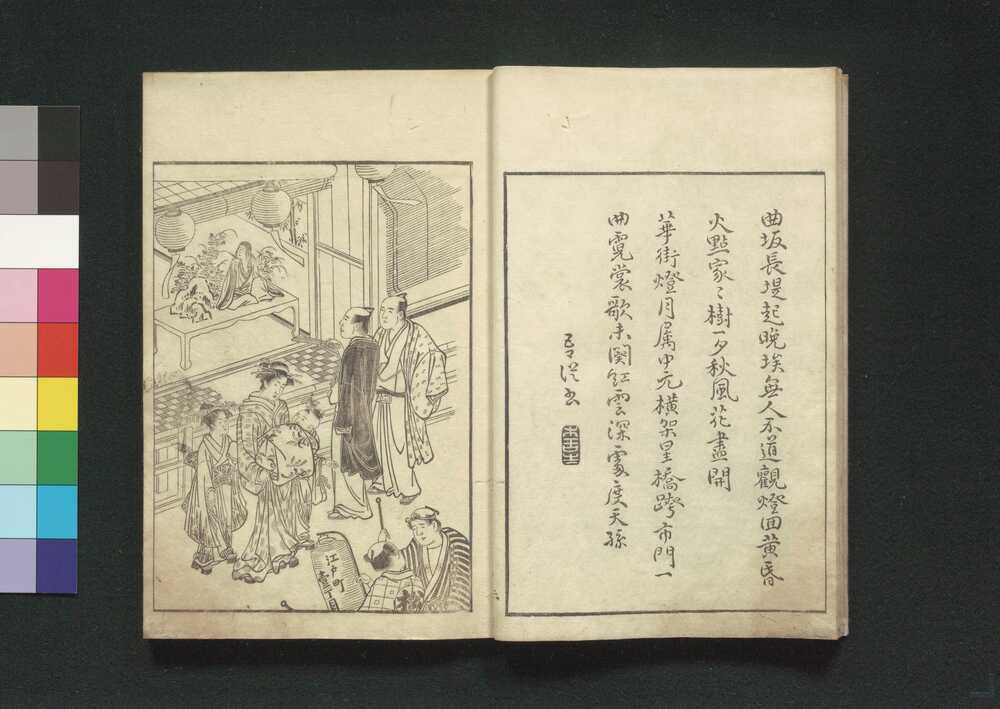 曲坂長堤起晩埃無人不道觀燈回黄昏
火點家〻樹一夕秋風花盡開
華街燈月屬中元横架星橋跨市門一
曲霓裳歌未闋紅雲深處度天孫
書
江戸町
壹丁目